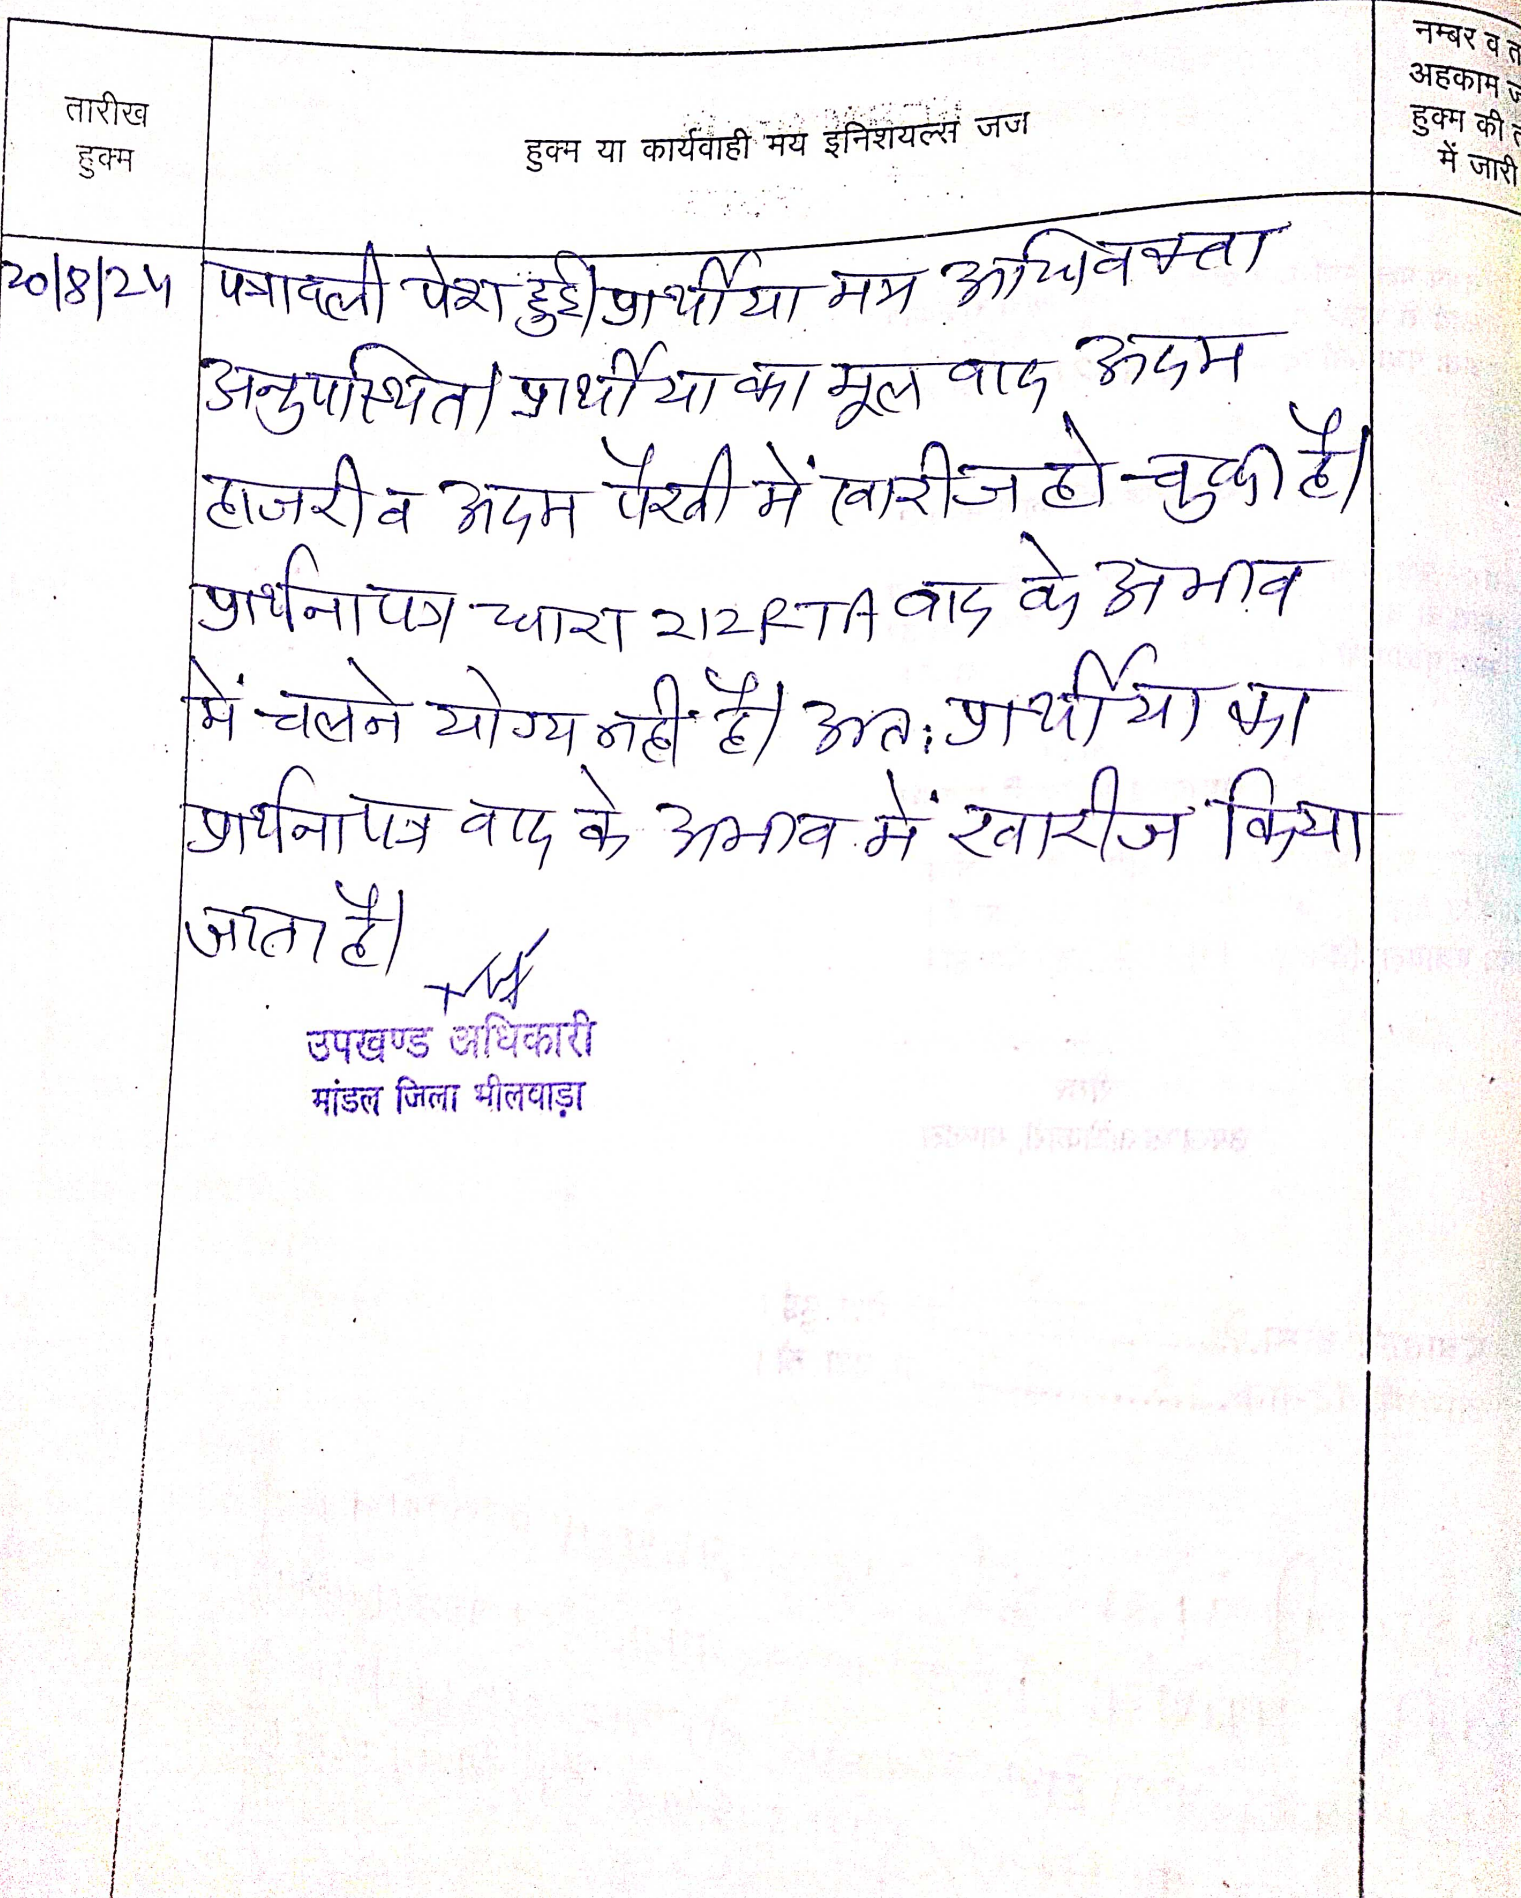 तारीख
हुक्म
हुक्म या कार्यवाही मय इनिशयल्स जज
नम्बर व त
अहकाम ज
हुक्म की त
में जारी
20/8/24 पत्रावली पेश हुई। प्रार्थीया मय अधिवक्ता
अनुपस्थित। प्रार्थीया का मूल वाद अदम
हाजरी व अदम पैरवी में खारीज हो चुकी है।
प्रार्थना पत्र धारा 212 RTA वाद के अभाव
में चलने योग्य नहीं है। अतः प्रार्थीया का
प्रार्थना पत्र वाद के अभाव में खारीज किया
जाता है।
उपखण्ड अधिकारी
मांडल जिला भीलवाड़ा